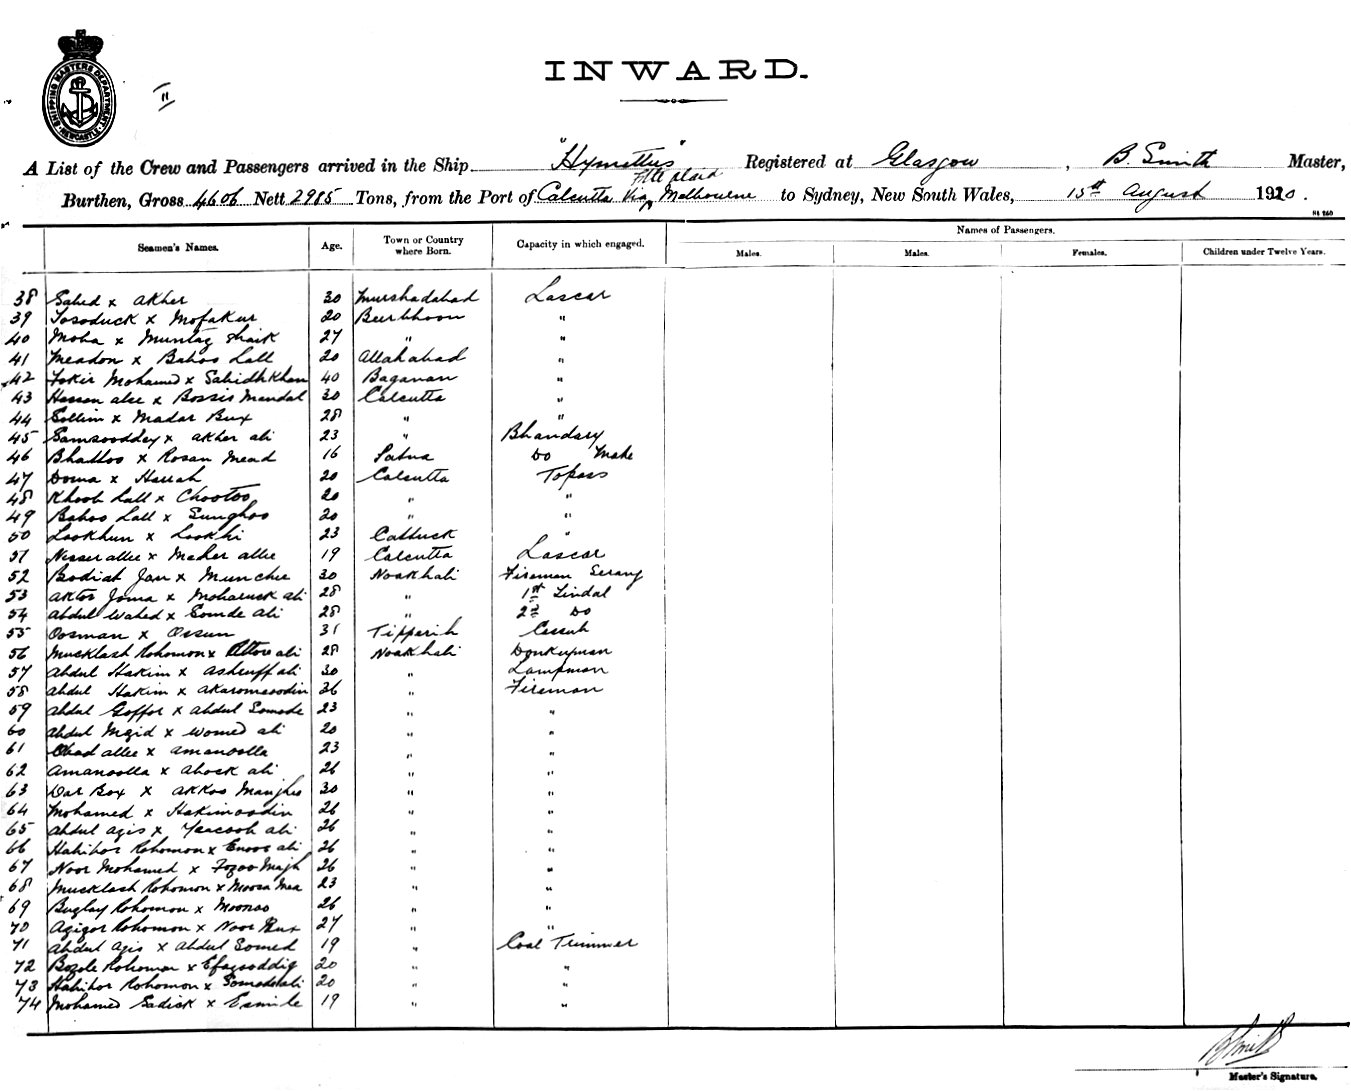 SHIPPING MASTERS DEPARTMENT
NEWCASTLE
II
INWARD.
A List of the Crew and Passengers arrived in the Ship "Hymettus" Registered at Glasgow, B. Smith Master,
Burthen, Gross 4606 Nett 2985 Tons, from the Port of Calcutta Via Melbourne to Sydney, New South Wales, 15th August 1910.
Seamen's Names. Age. Town or Country where Born. Capacity in which engaged. Names of Passengers.
Males. Males. Females. Children under Twelve Years.
38 Sahed x Akher 30 Murshadabad Lascar
39 x Mofakur 20 Beerbhoon "
40 Moha x Muntaz Shaik 27 " "
41 Meadon x Baboo Lall 20 Allahabad "
42 Fokir Mohamed x Sahidh Khan 40 Baganan "
43 Hassan alee x Bossir Mandal 30 Calcutta "
44 Sollim x Madar Bux 28 " "
45 Samsooddey x akher ali 23 " Bhandary
46 Bhattoo x Rosan Mead 16 Patna Do Mate
47 Doma x Harrah 20 Calcutta Topass
48 Khoob Lall x Chootoo 20 " "
49 Baboo Lall x Sunghoo 20 " "
50 Lookhun x Lookhi 23 Cattuck "
51 Nesser allee x Maher allee 19 Calcutta Lascar
52 Bodiat Jan x Munchee 30 Noakhali Fireman Serang
53 Aktor Joma x Moharuck ali 28 " 1st Tindal
54 Abdul Wahed x Somde Ali 28 " 2nd Do
55 Oosman x Ossun 31 Tipperih Cassub
56 Mucklash Rohomon x ali 28 Noakhali Donkeyman
57 Abdul Hakim x Ashruff ali 30 " Lampman
58 Abdul Hakim x Akaromaoodin 36 " Fireman
59 Abdul Goffor x Abdul Somode 23 " "
60 Abdul Mgid x Womed ali 20 " "
61 Obad allee x Amanoolla 23 " "
62 Amanoolla x Ahock ali 26 " "
63 Dar Box x Akkoo 30 " "
64 Mohamed x Hakimoodin 26 " "
65 Abdul Agis x Yaacoob ali 26 " "
66 Habibor Rohomon x Enoos ali 26 " "
67 Noor Mohamed x Fozoo Majh 26 " "
68 Mucklash Rohomon x Moosa Mea 23 " "
69 Buglay Rohomon x Moonoo 26 " "
70 Azigor Rohomon x Noor Bux 27 " "
71 Abdul Azis x Abdul Somed 19 " Coal Trimmer
72 Bozole Rohoman x Efazoddig 20 " "
73 Habibor Rohomon x Somodali 20 " "
74 Mohamed Sadick x Esmile 19 " "
B Smith
Master's Signature.